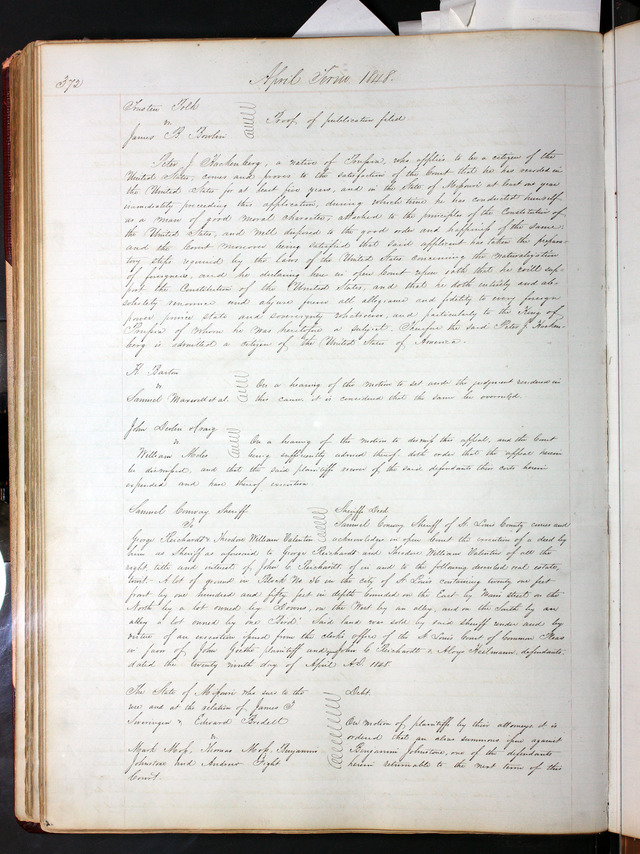 372
April Term 1848.
Trusten Polk
vs
James B Bowlin
Proof of publication filed
Peter J Kockenberg, a native of Prussia, who applies to be a citizen of the
United States, comes and proves to the satisfaction of the Court that he has resided in
the United States for at least five years, and in the State of Missouri at least one year
immediately preceding this application, during which time he has conducted himself
as a man of good moral character, attached to the principles of the Constitution of
the United States, and well disposed to the good order and happiness of the same
and the Court moreover being satisfied that said applicant has taken the prepara-
tory steps required by the laws of the United States concerning the naturalization
of foreigners, and he declaring here in open Court upon oath that he will sup-
port the Constitution of the United States, and that he doth entirely and ab-
solutely renounce and abjure forever all allegiance and fidelity to every foreign
power prince state and sovereignty whatsoever, and particularly to the King of
Prussia of whom he was heretofore a subject. Therefore the said Peter J Kocken-
berg is admitted a citizen of the United States of America.
K Barton
vs
Samuel Maxwell et al.
On a hearing of the motion to set aside the judgment rendered in
this cause it is considered that the same be overruled.
John Devlin Craig
vs
William Miles
On a hearing of the motion to dismiss this appeal, and the Court
being sufficiently advised thereof, doth order that the appeal herein
be dismissed, and that the said plaintiff recover of the said defendants their costs herein
expended and have thereof execution
Samuel Conway Sheriff
To
George Reichardt & Theodore William Valentin
Sheriffs Deed
Samuel Conway Sheriff of St Louis County comes and
acknowledges in open Court the execution of a deed by
him as Sheriff as aforesaid to George Reichardt and Theodore William Valentin of all the
right, title and interest of John C Reichardt of in and to the following described real estate,
towit- A lot of ground in Block No 36 in the city of St Louis containing twenty one feet
front by one hundred and fifty feet in depth bounded on the East by Main street, on the
North by a lot owned by on the West by an alley, and on the South by an
alley a lot owned by one Said land was sold by said sheriff under and by
virtue of an execution issued from the clerks office of the St Louis Court of Common Pleas
in favor of John Goethe plaintiff and John C Reichardt & defendants,
dated the twenty ninth day of April AD 1848
The State of Missouri who sues to the
use and at the relation of James T
Swearingen & Edward Bredell
vs
Mark Moss, Thomas Moss, Benjamin
Johnston and Andrew Fight
Court.
Debt.
On motion of plaintiffs by their attorneys it is
ordered that an alias summons issue against
Benjamin Johnstone, one of the defendants
herein returnable to the next term of this